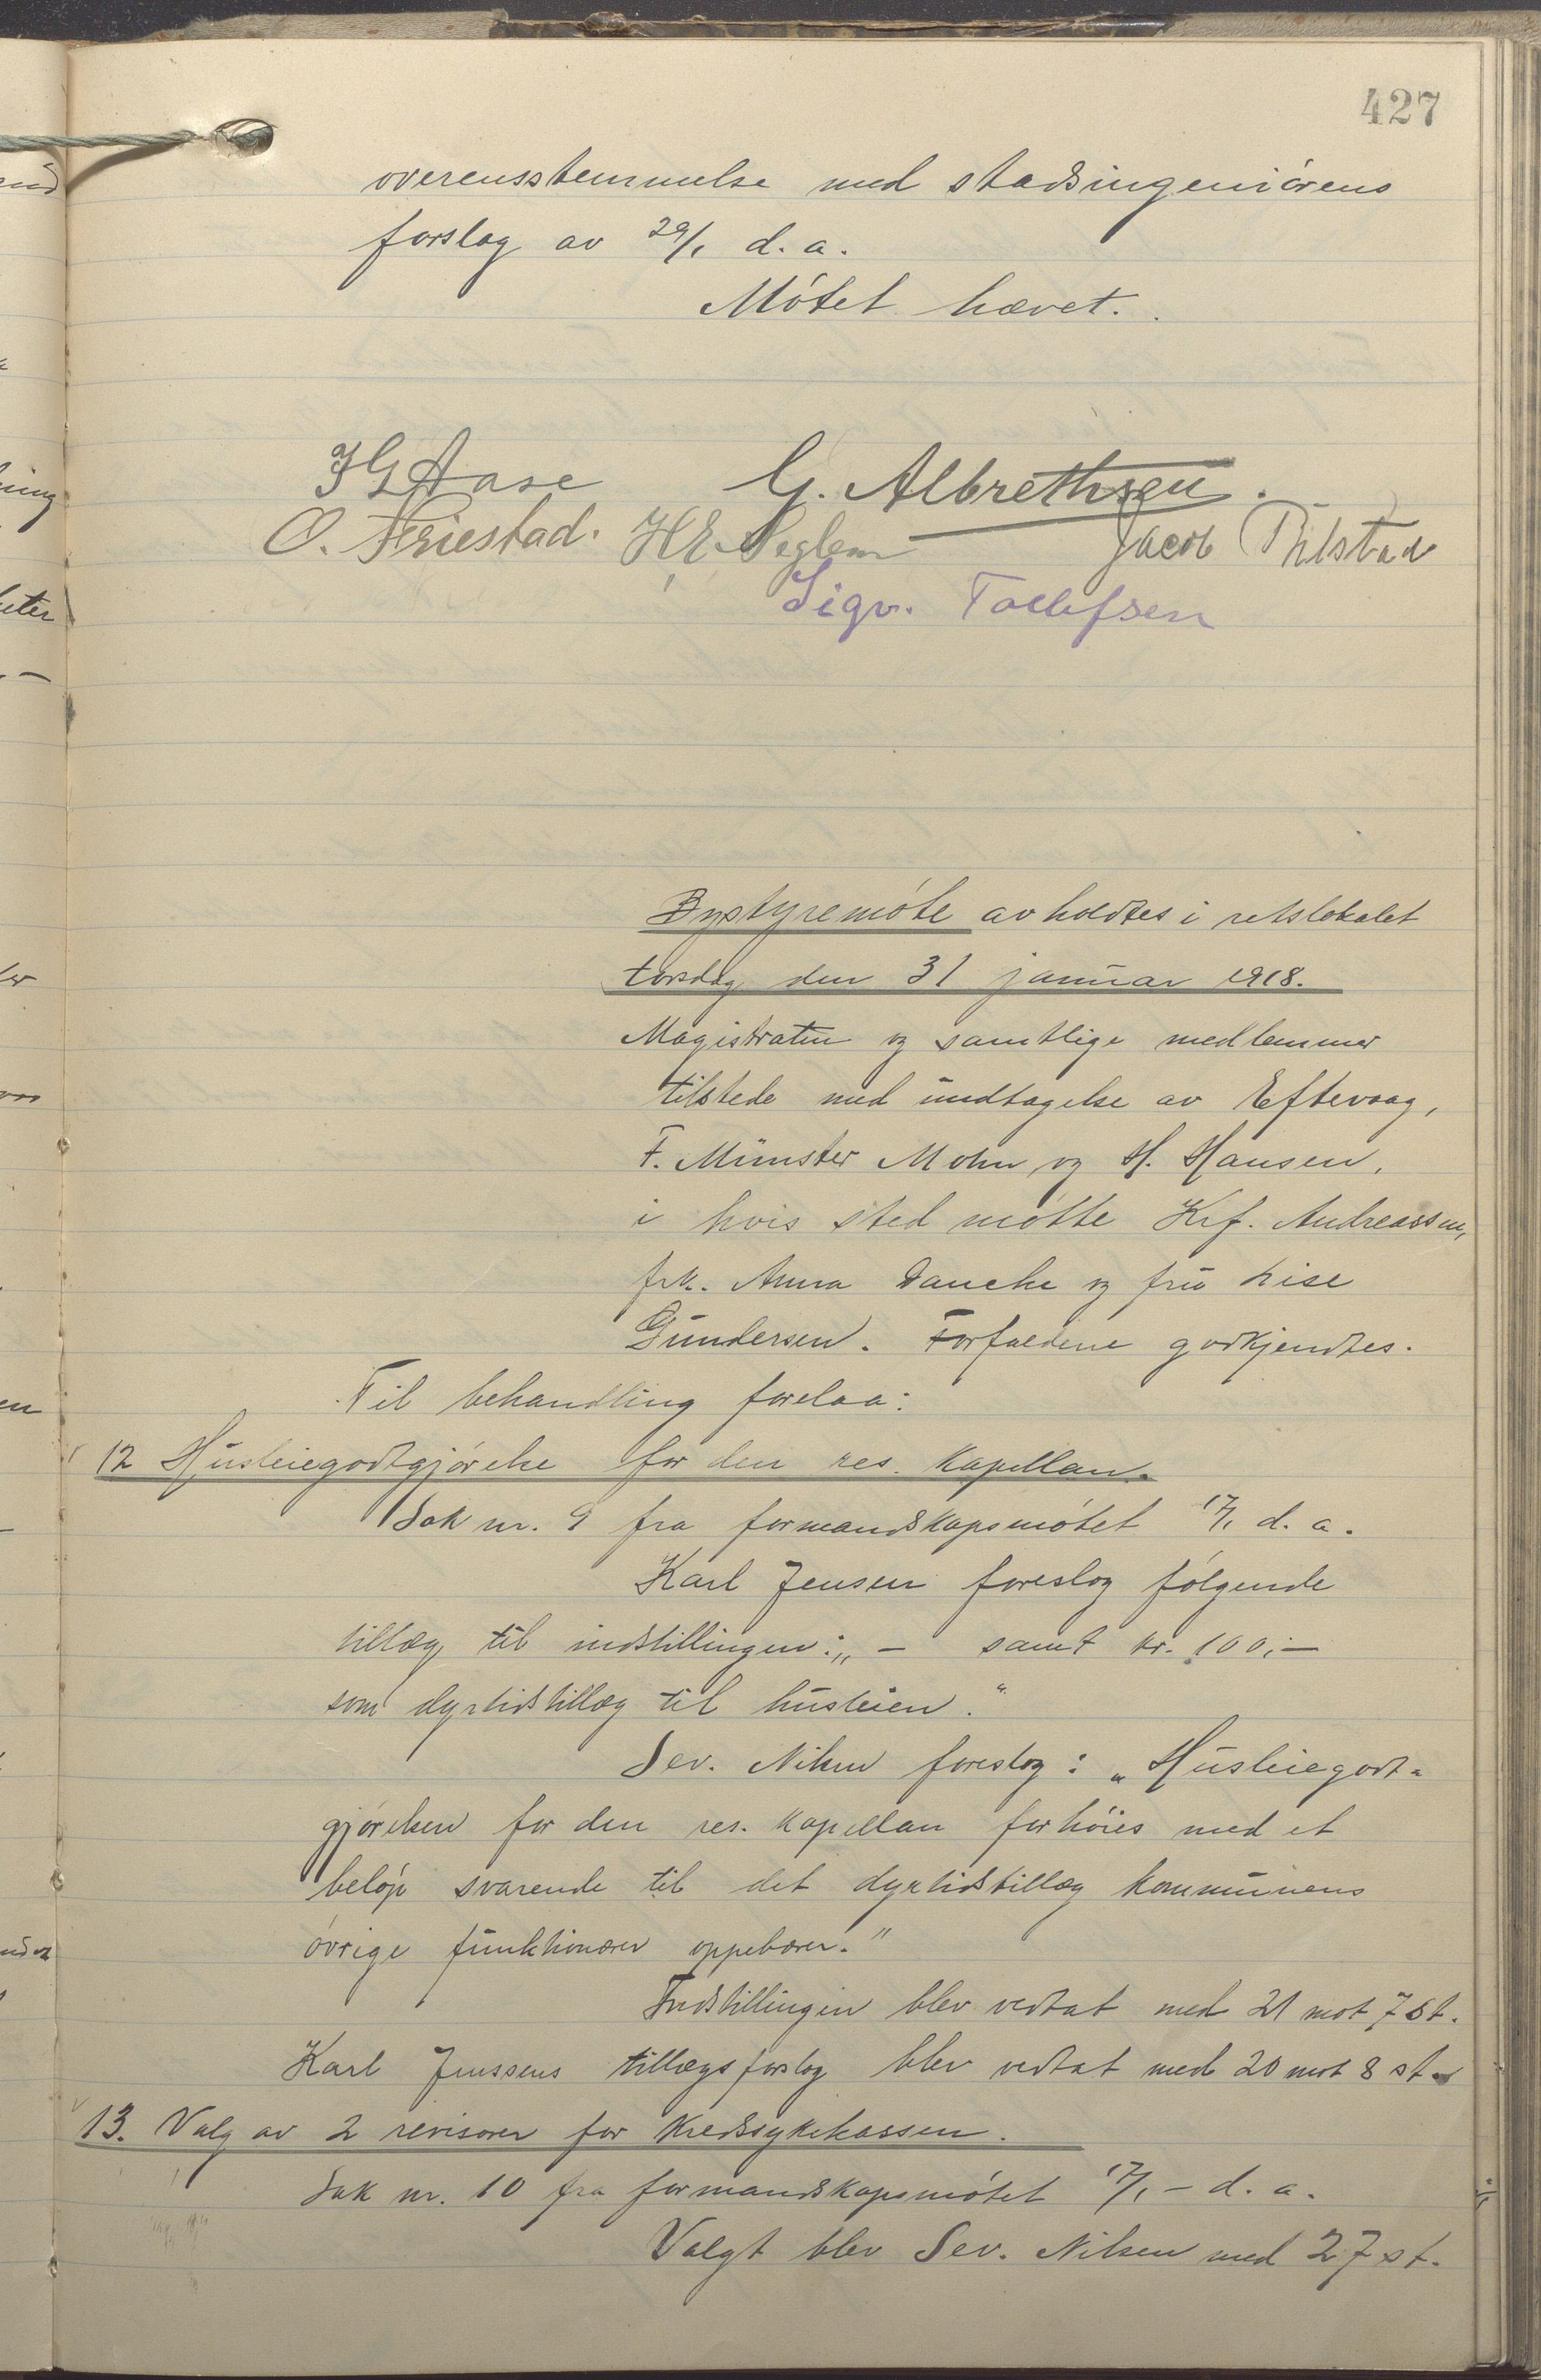 427
overensstemmelse med stadsingeniörens
forslag av 29/1 d. a.
Mötet hævet.
I G Aase G. Albrethsen.
O. Friestad. H. E. Seglem Jacob Tilstad
Sigv. Tollefsen
Bystyremöte avholdtes i retslokalet
torsdag den 31 januar 1918.
Magistraten og samtlige medlemmer
tilstede med undtagelse av Eftevaag,
F. Münster Mohn og H. Hansen,
i hvis sted mötte Krf. Andreassen,
frk. Anna Danche og fru Lise
Gundersen. Forfaldene godkjendtes.
Til behandling forelaa:
12 Husleiegodtgjörelse for den res. kapellan.
Sak nr. 9 fra formandskapsmötet 17/1 d. a.
Karl Jensen foreslog fölgende
tillæg til indstillingen: „ – samt kr. 100,–
som dyrtidstillæg til husleien."
Sev. Nilsen foreslog: „Husleiegodt-
gjörelsen for den res. kapellan forhöies med et
belöp svarende til det dyrtidstillæg kommunens
övrige funktionærer oppebærer."
Indstillingen blev vedtat med 21 mot 7 st.
Karl Jenssens tillægsforslag blev vedtat med 20 mot 8 st.
13. Valg av 2 revisorer for kredssykekassen.
Sak nr. 10 fra formandskapsmötet 17/1 – d. a.
Valgt blev Sev. Nilsen med 27 st.